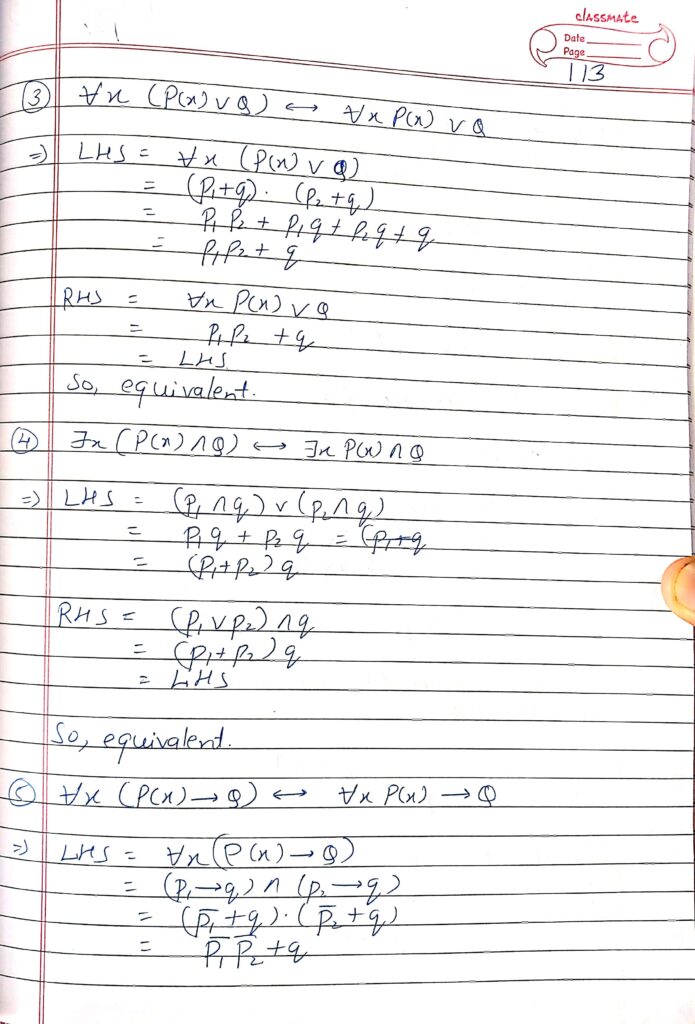 classmate
Date
Page
113
③ ∀x (P(x) ∨ Q) ↔ ∀x P(x) ∨ Q
⇒ LHS = ∀x (P(x) ∨ Q)
= (P₁+q). (P₂+q)
= P₁ P₂ + P₁q + P₂q + q
= P₁P₂ + q
RHS = ∀x P(x) ∨ Q
= P₁ P₂ + q
= LHS
So, equivalent.
④ ∃x (P(x) ∧ Q) ↔ ∃x P(x) ∧ Q
⇒ LHS = (P₁ ∧ q) ∨ (P₂ ∧ q)
= P₁ q + P₂ q = (P₁+q
= (P₁+P₂) q
RHS = (P₁ ∨ P₂) ∧ q
= (P₁+P₂) q
= LHS
So, equivalent.
⑤ ∀x (P(x) → Q) ↔ ∀x P(x) → Q
⇒ LHS = ∀x (P(x) → Q)
= (P₁ → q) ∧ (P₂ → q)
= (P̅₁ + q) . (P̅₂ + q)
= P̅₁ P̅₂ + q